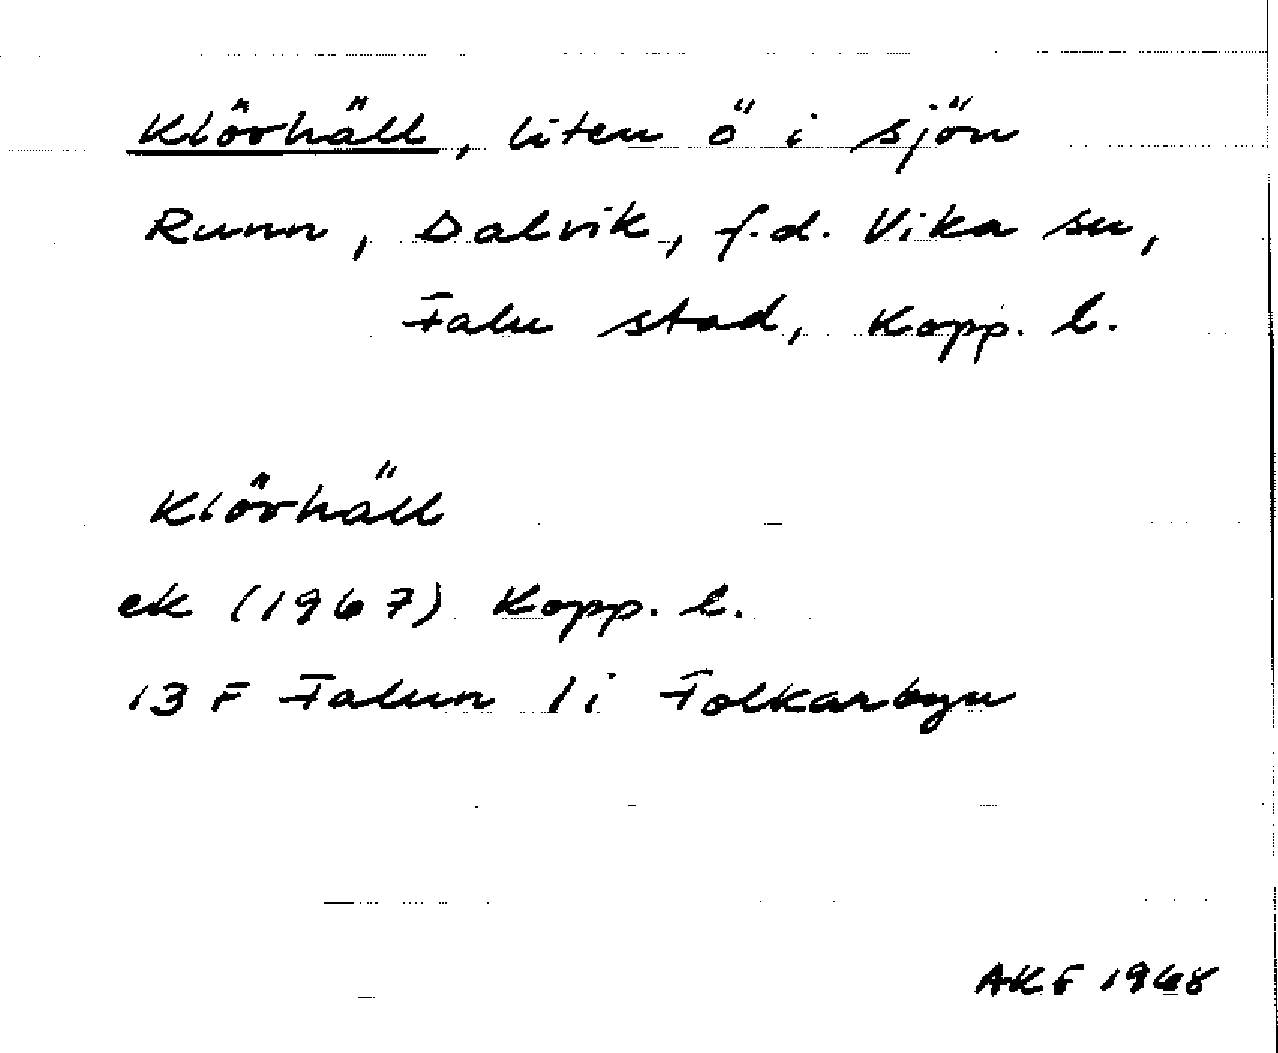 Klövhäll, liten ö i sjön
Runn, Dalvik, f.d. Vika sn,
Falu stad, Kopp. l.
Klövhäll
ek (1967) Kopp. l.
13 F Falun 1 i Folkarbyn
AKF 1968